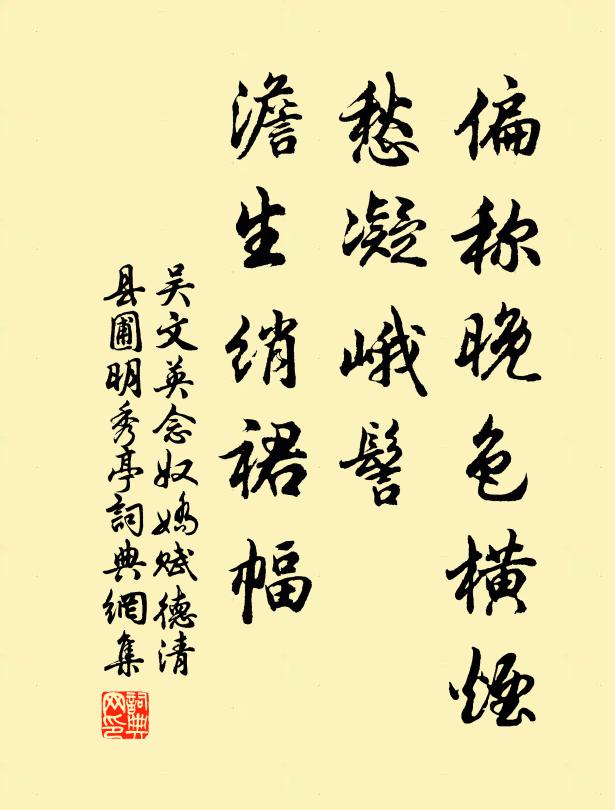 偏称晚色横烟
愁凝峨髻
澹生绡裙幅
吴文英念奴娇赋德清
县圃明秀亭詞典網集
詞典网印